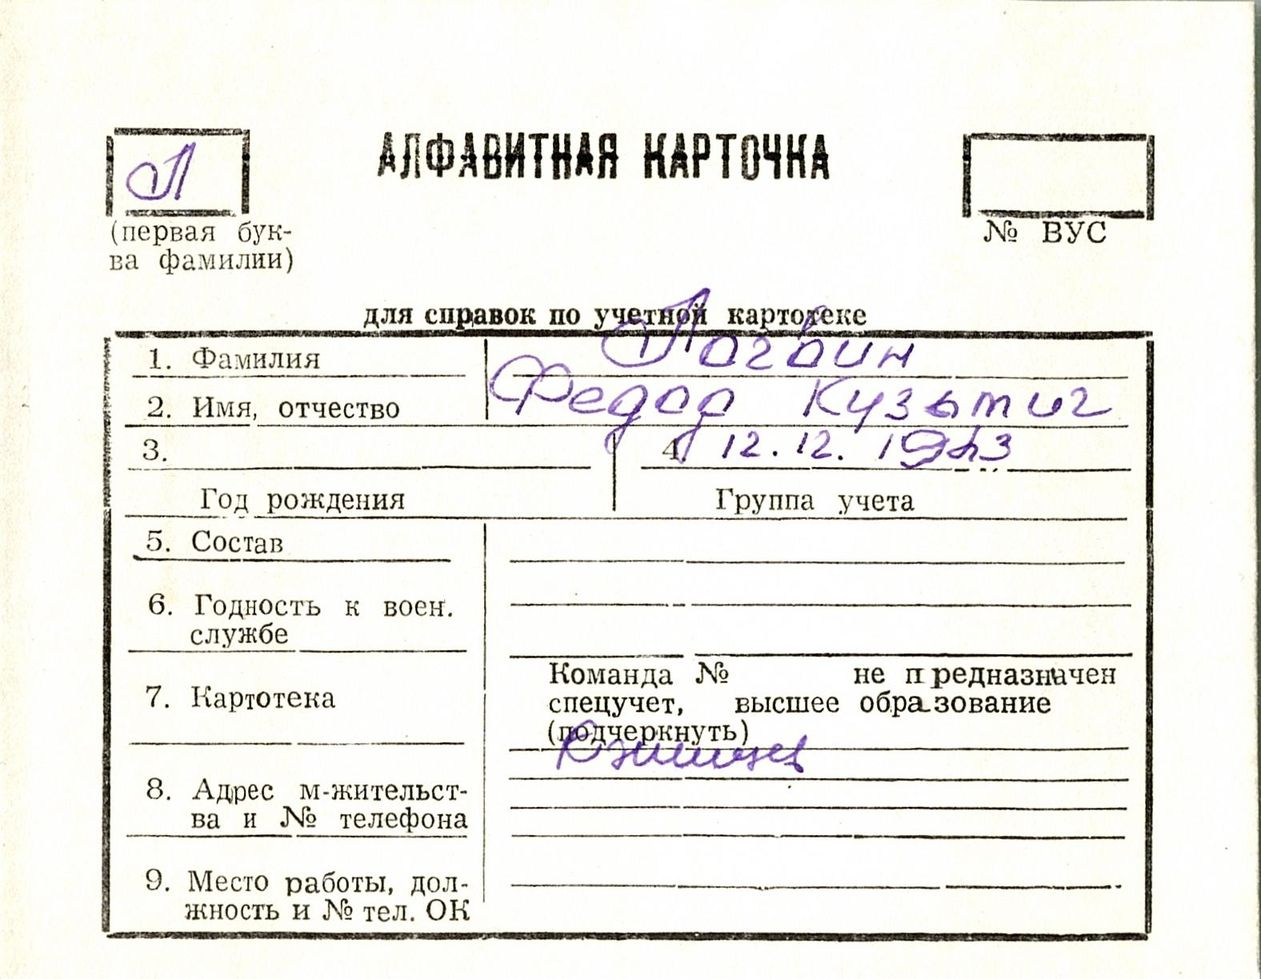 Л
АЛФАВИТНАЯ КАРТОЧКА
(первая бук-
ва фамилии)
№ ВУС
для справок по учетной картотеке
1. Фамилия
2. Имя, отчество Федор Кузьмич
3. 4. 12.12.
Год рождения Группа учета
5. Состав
6. Годность к воен.
службе
7. Картотека
Команда № не предназначен
спецучет, высшее образование
(подчеркнуть)
8. Адрес м-жительст-
ва и № телефона
9. Место работы, дол-
жность и № тел. ОК